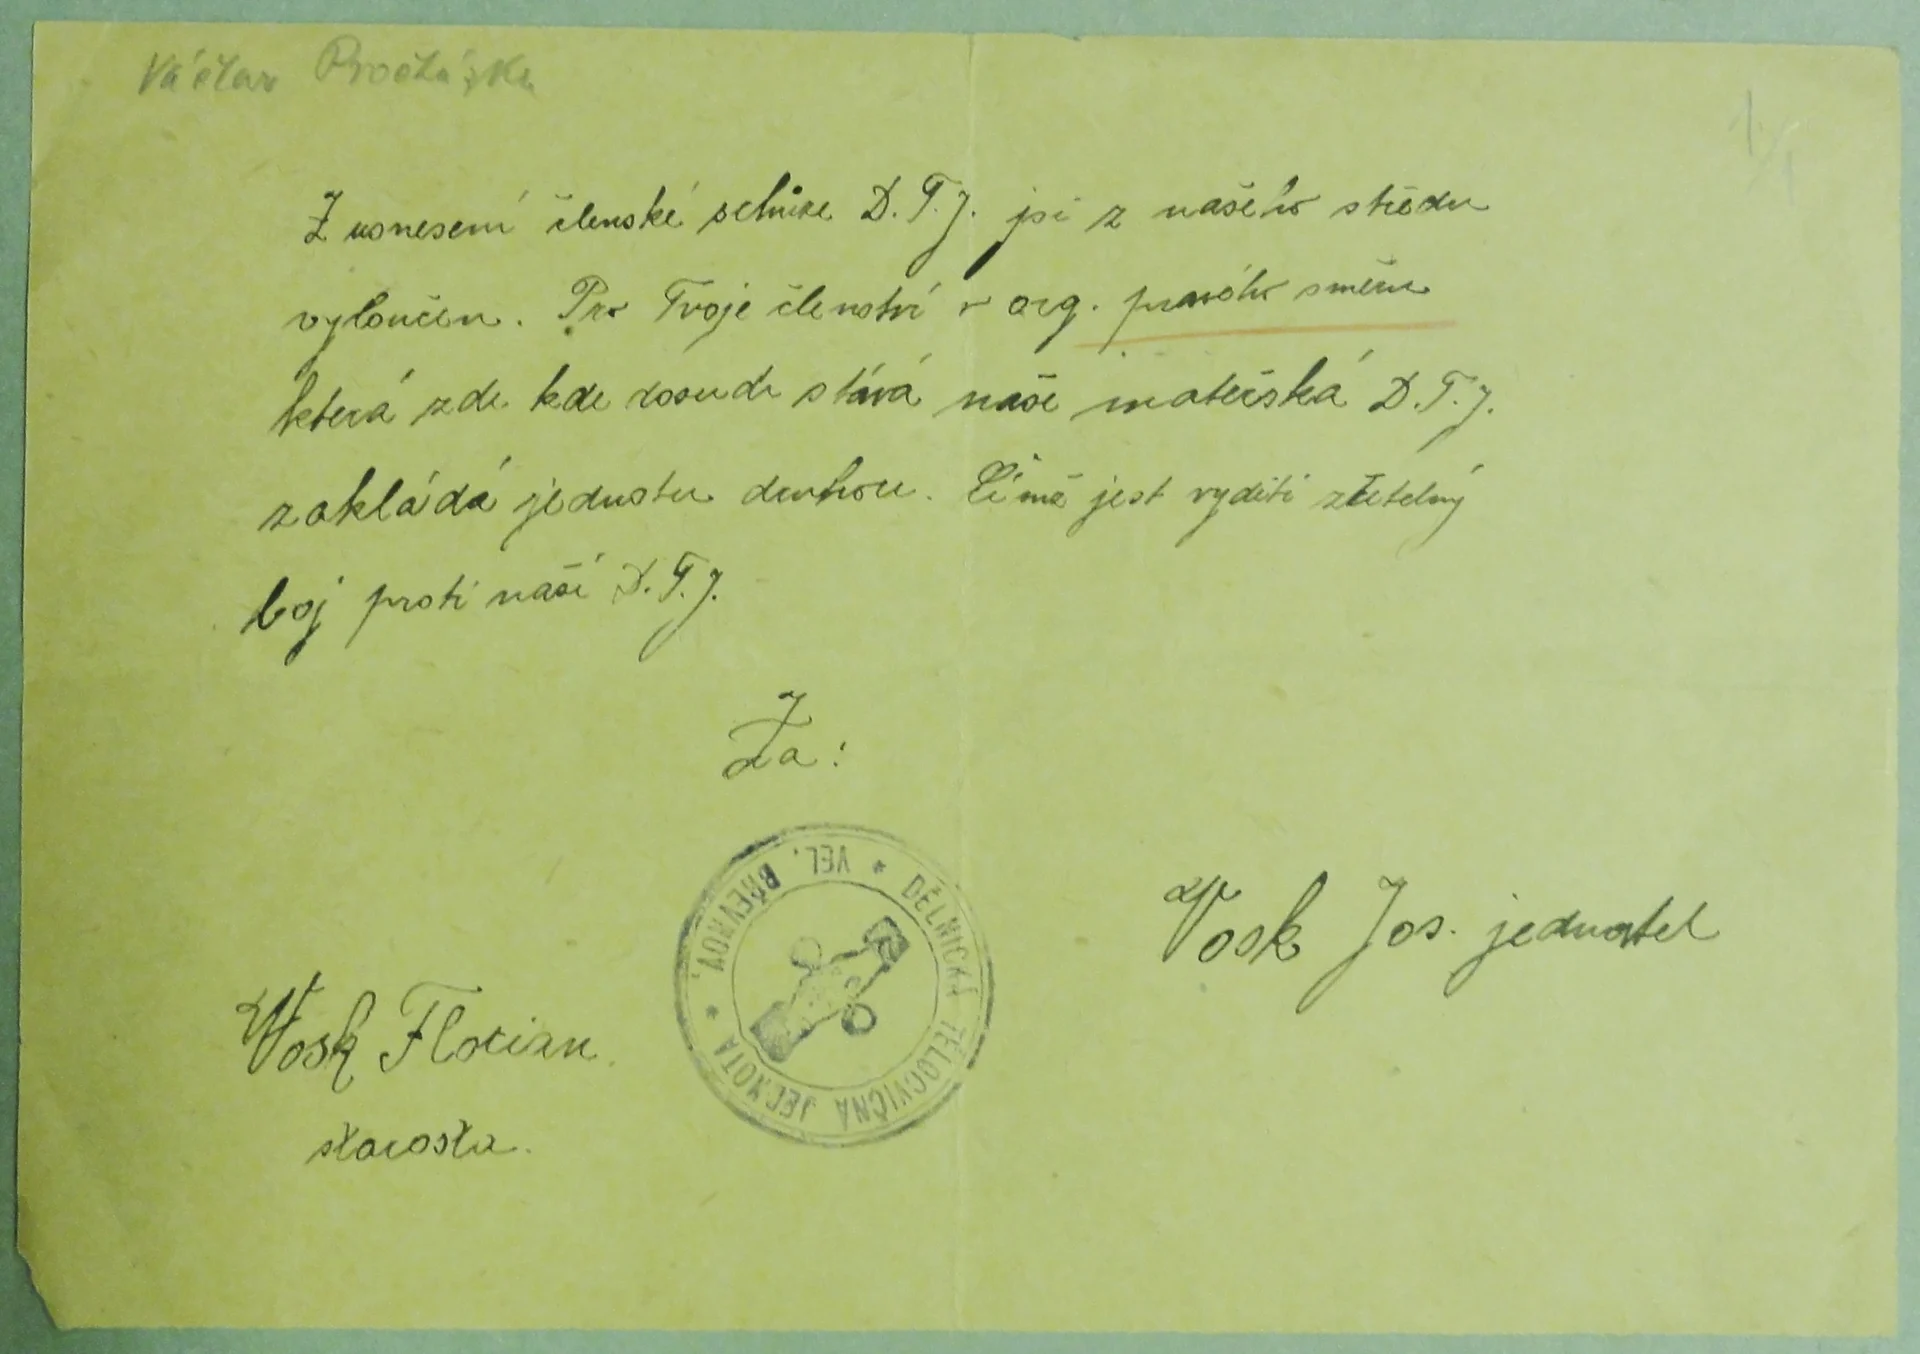 Václav Procházka
Z usnesení členské schůze D.T.J. jsi z našeho středu
vyloučen. Pro Tvoje členství v org. pravého směru
která zde kde dosud stává naše mateřská D.T.J.
zakládá jednotu druhou. Čímž jest vyditi zřetelný
boj proti naší D.T.J.
Za:
DĚLNICKÁ TĚLOCVIČNÁ JEDNOTA * VEL. *
Vosk Jos. jednatel
Vosk Florian
starosta.